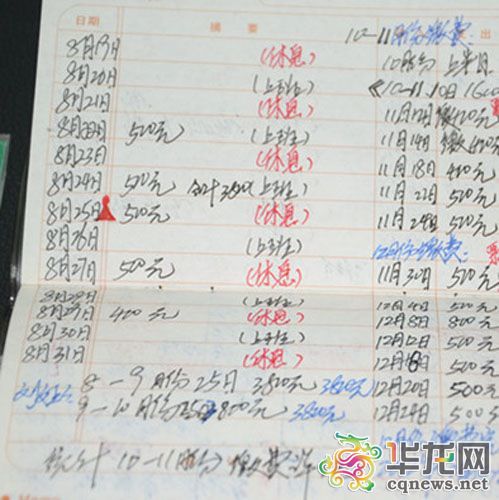 日期 摘要
8月19日 (休息)
8月20日 (上班)
8月21日 (休息)
8月22日 500元 (上班)
8月23日 (休息)
8月24日 500元 合计3800 (上班)
8月25日 500元 (休息)
8月26日 (上班)
8月27日 500元 (休息)
8月28日 (上班)
8月29日 400元 (休息)
8月30日 (上班)
8月31日 (休息)
8-9月份25日 3800元 3800元
9-10月份25日 3800元 3800元
统计10-11月份缴费
10-11月份缴费 出
10月份 上半月
10-11.10日
11月12日
11月14日
11月18日 400元
11月22日 500元
11月24日 500元
12月份缴费:
11月30日 500元
12月4日 500元
12月8日 800元
12月12日 500元
12月18日 500元
12月20日 500元
12月24日 500元
华龙网
cqnews.net